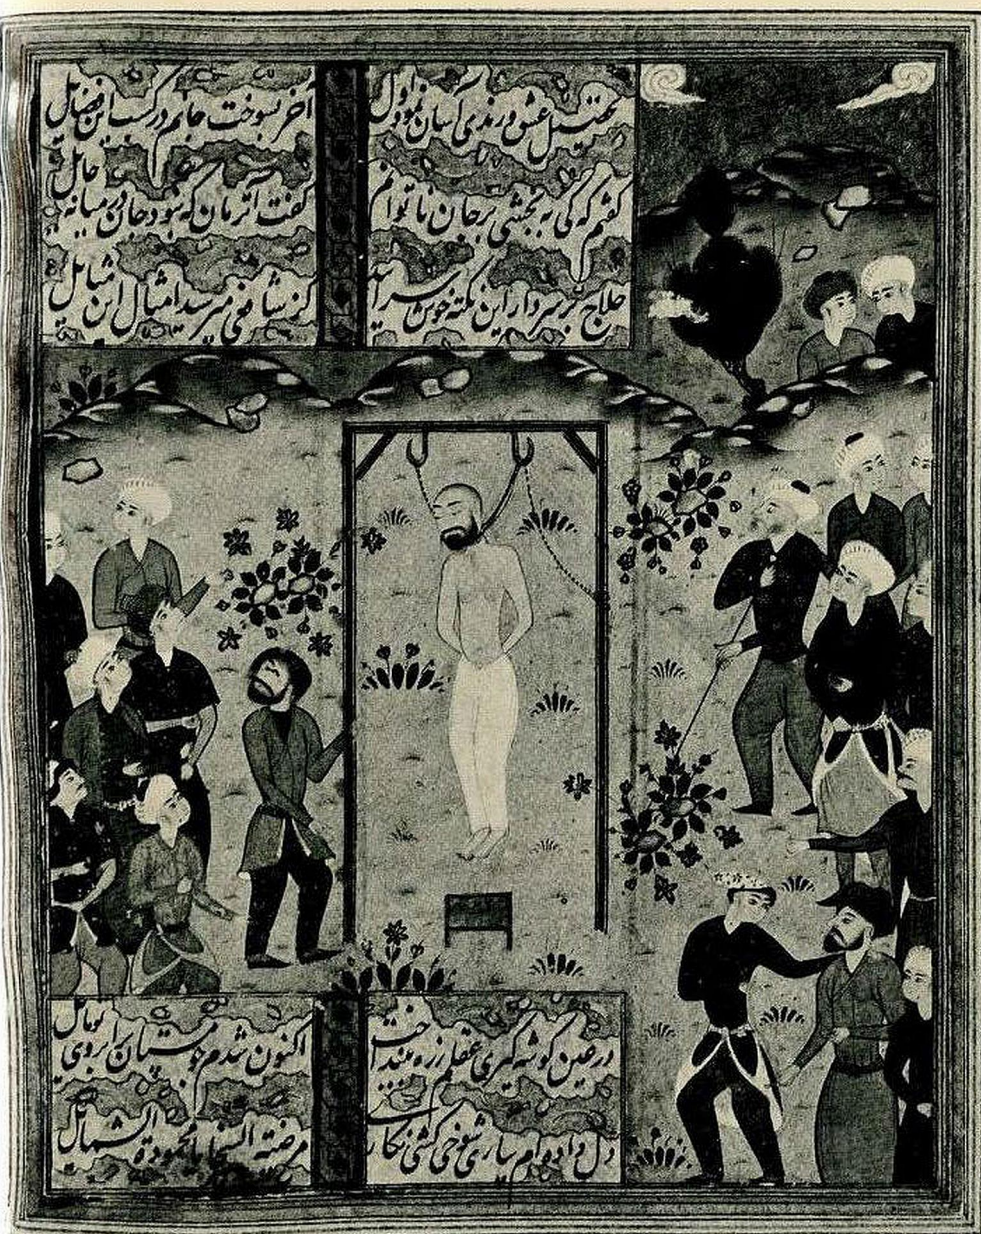 تحصیل عشق و رندی آسان نمود اول
آخر بسوخت جانم در کسب این فضایل
گفتم که کی ببخشی بر جان ناتوانم
گفت آنزمان که نبود جان در میانه حایل
حلاج بر سر دار این نکته خوش سراید
کز شافعی مپرسید امثال این مسایل
در عین گوشه گیری عقلم ز ره بینداخت
اکنون شدم چو مستان بر ابروی تو مایل
دل داده‌ام بیاری شوخی کشی نگاری
مرضیة السجایا محمودة الشمایل